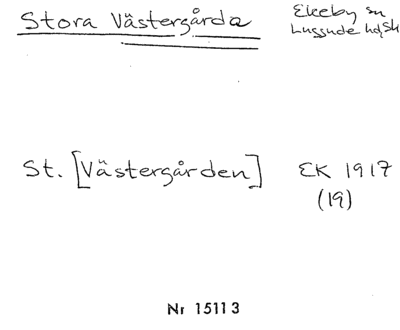 Stora Västergårda
Ekeby sn
Luggude hd, Sk
St. [Västergården]
EK 1917
(19)
Nr 15113